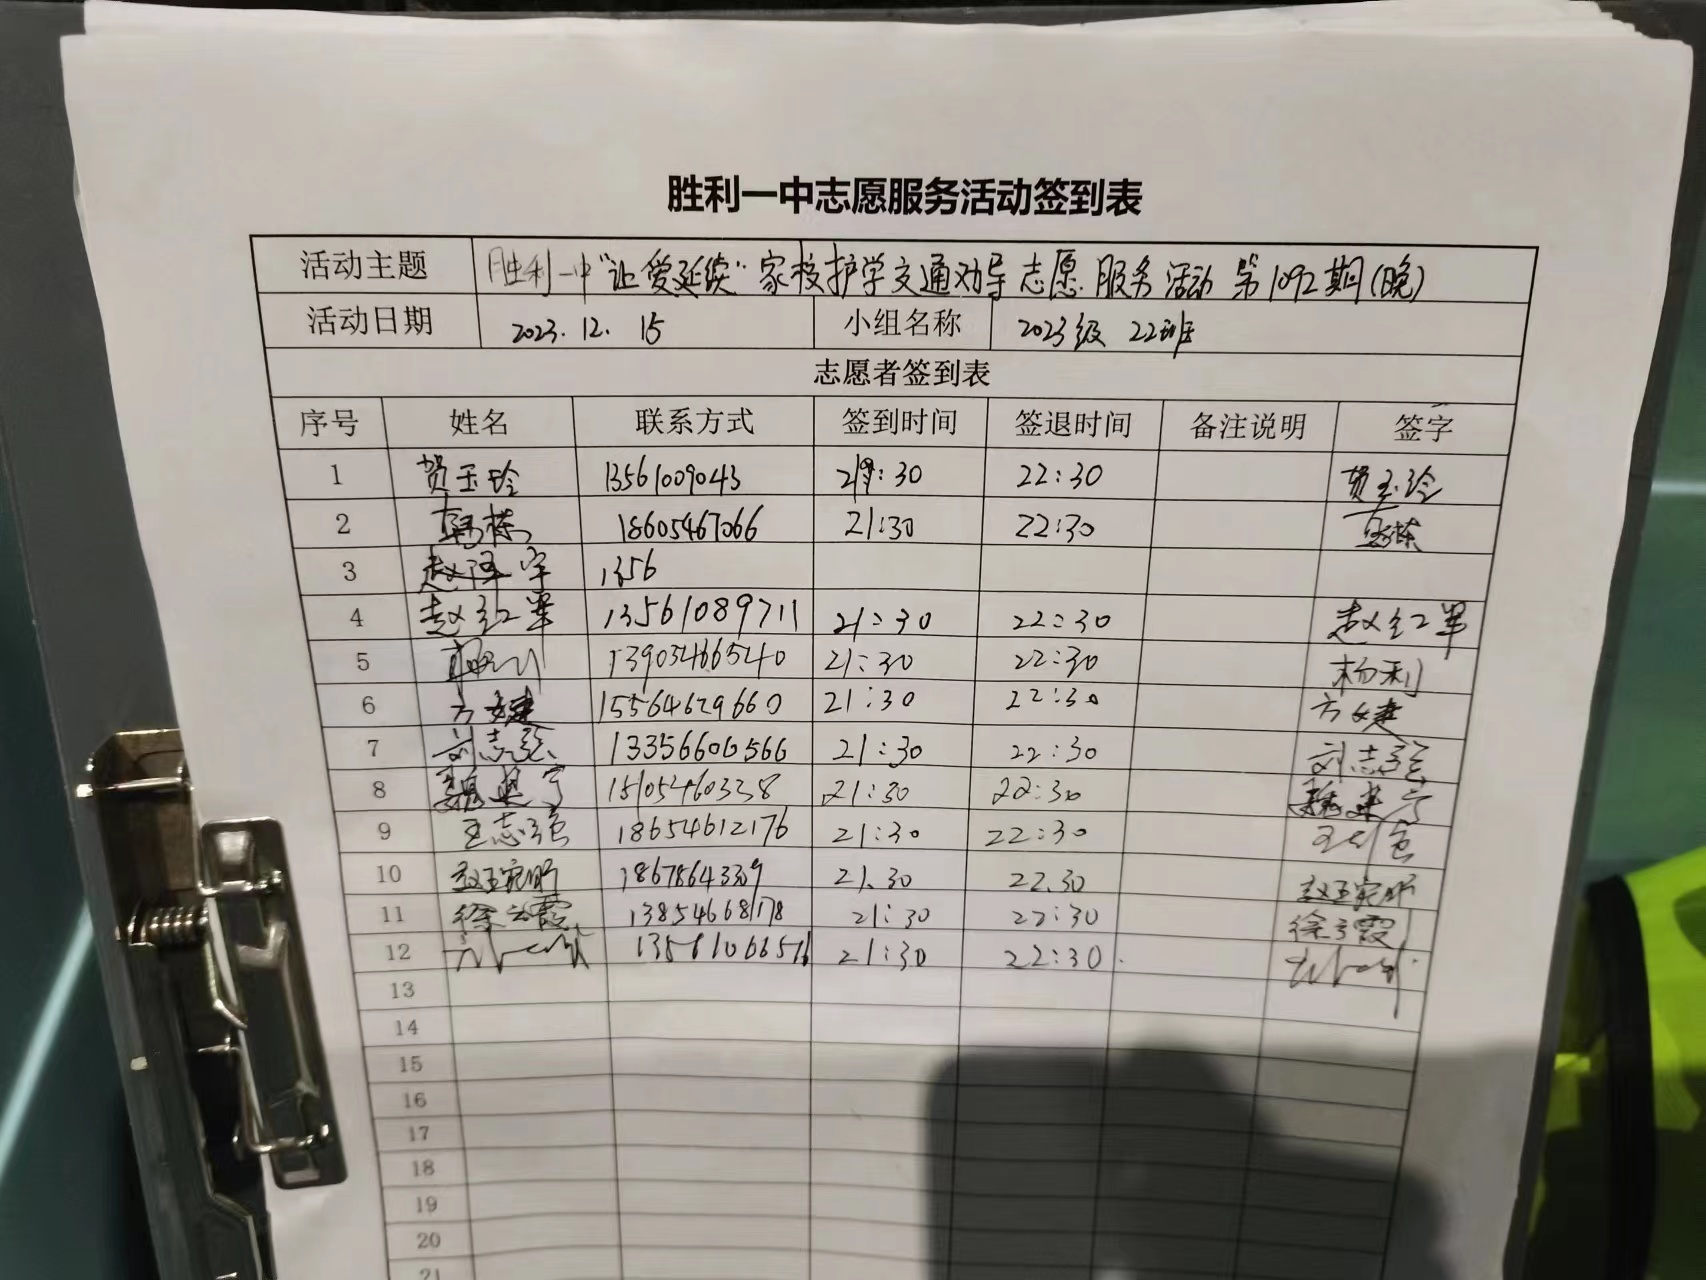 胜利一中志愿服务活动签到表
活动主题 胜利一中"让爱延续"家校护学交通劝导志愿服务活动第1092期(晚)
活动日期 2023.12.15 小组名称 2023级 22班
志愿者签到表
序号 姓名 联系方式 签到时间 签退时间 备注说明 签字
1 贺玉玲 13561009043 21:30 22:30 贺玉玲
2 韩栋 18605467066 21:30 22:30 韩栋
3 1356
4 赵红军 13561089711 21:30 22:30 赵红军
5 杨利 13903466540 21:30 22:30 杨利
6 方婕 15564629660 21:30 22:30 方婕
7 刘志强 13356606566 21:30 22:30 刘志强
8 15105460338 21:30 22:30
9 王志强 18654612176 21:30 22:30
10 21.30 22.30
11 徐云霞 13854668178 21:30 22:30 徐云霞
12 21:30 22:30
13
14
15
16
17
18
19
20
21